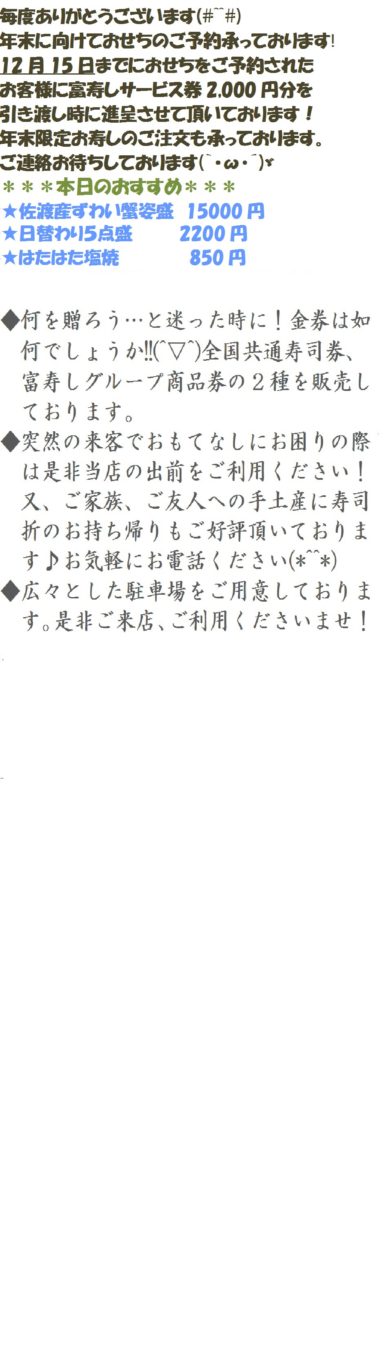 毎度ありがとうございます(#^^#)
年末に向けておせちのご予約承っております!
12月15日までにおせちをご予約された
お客様に富寿しサービス券2,000円分を
引き渡し時に進呈させて頂いております！
年末限定お寿しのご注文も承っております。
ご連絡お待ちしております(｀・ω・´)ゞ
＊＊＊本日のおすすめ＊＊＊
★佐渡産ずわい蟹姿盛 15000円
★日替わり5点盛 2200円
★はたはた塩焼 850円
◆何を贈ろう…と迷った時に！金券は如
何でしょうか!!(^▽^)全国共通寿司券、
富寿しグループ商品券の２種を販売し
ております。
◆突然の来客でおもてなしにお困りの際
は是非当店の出前をご利用ください！
又、ご家族、ご友人への手土産に寿司
折のお持ち帰りもご好評頂いておりま
す♪お気軽にお電話ください(*^^*)
◆広々とした駐車場をご用意しておりま
す。是非ご来店、ご利用くださいませ！